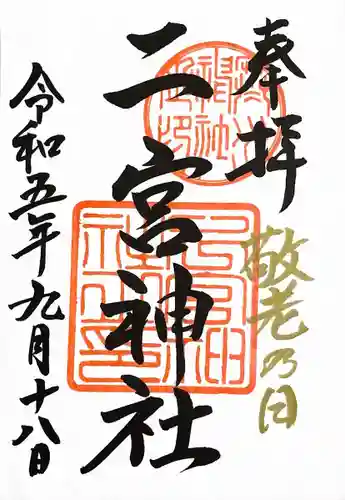 奉拝
敬老乃日
二宮神社
令和五年九月十八日